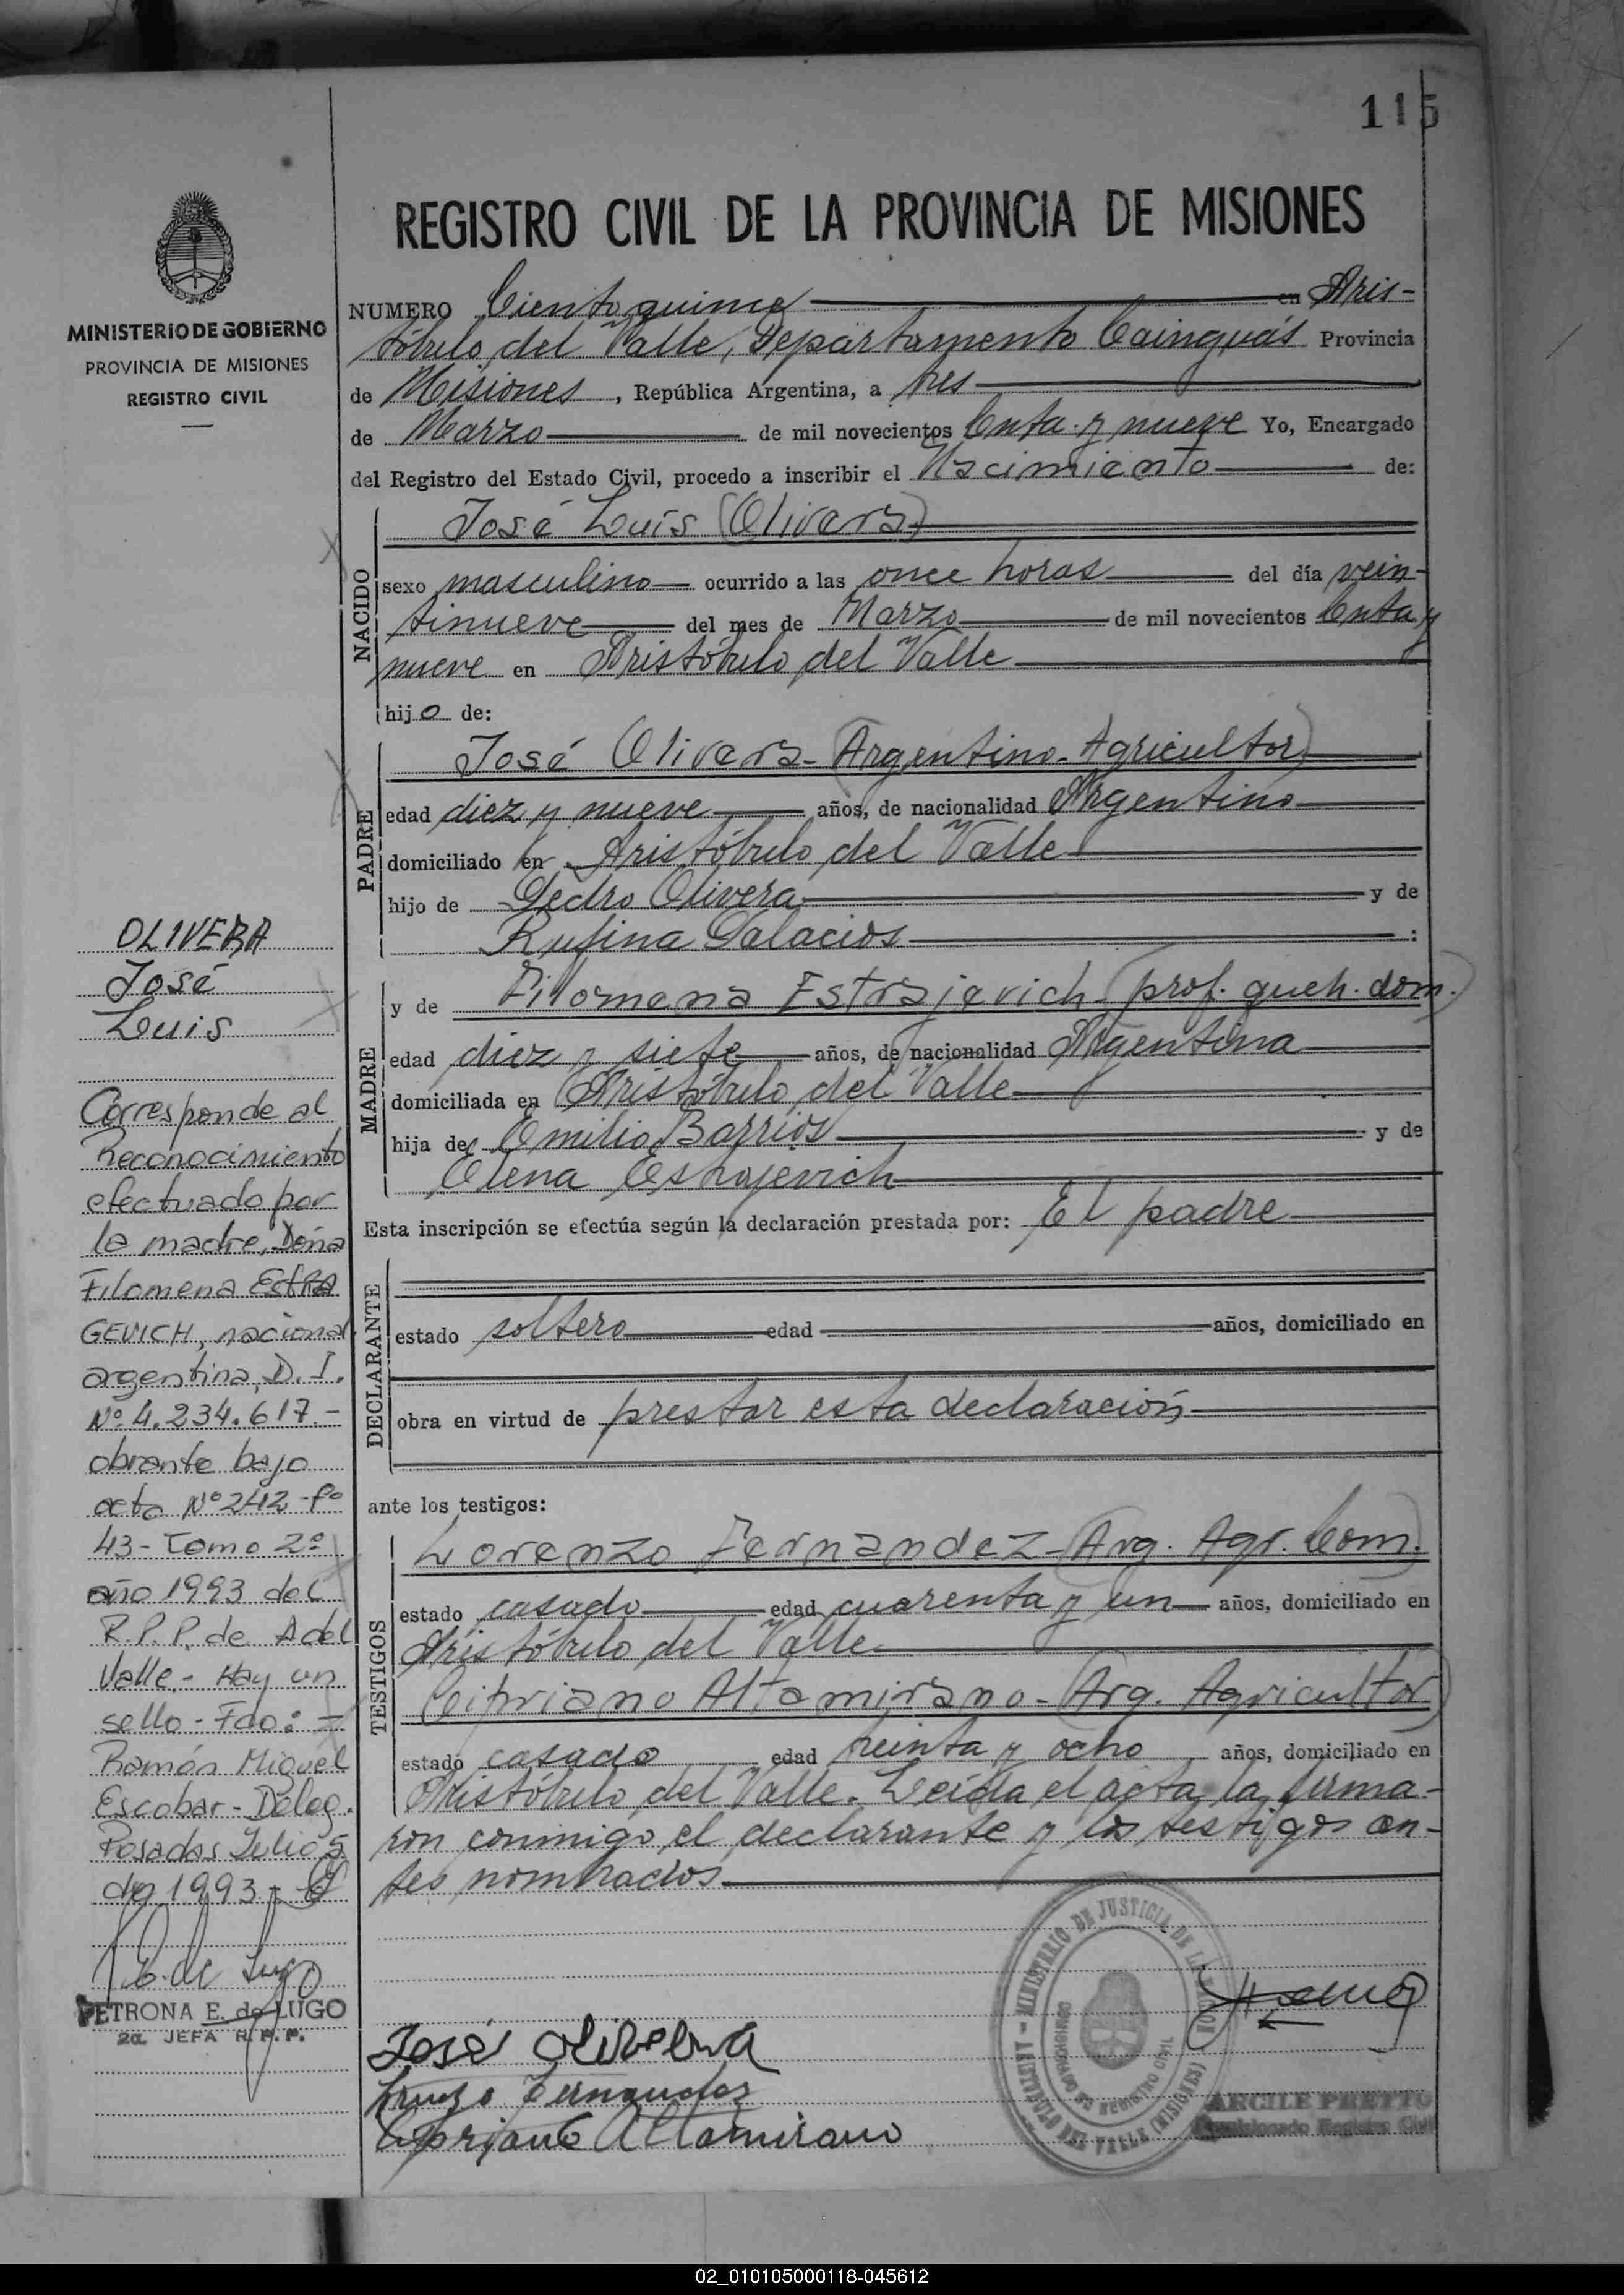 115
REGISTRO CIVIL DE LA PROVINCIA DE MISIONES
MINISTERIO DE GOBIERNO
PROVINCIA DE MISIONES
REGISTRO CIVIL
NUMERO Ciento quince en Aris-
tóbulo del Valle, Departamento Cainguás Provincia
de Misiones, República Argentina, a tres
de Marzo de mil novecientos y nueve Yo, Encargado
del Registro del Estado Civil, procedo a inscribir el Nacimiento de:
NACIDO
José Luis (Olivera)
sexo masculino ocurrido a las once horas del día vein-
tinueve del mes de Marzo de mil novecientos y
nueve en Aristóbulo del Valle
hijo de:
PADRE
José Olivera - (Argentino - Agricultor)
edad diez y nueve años, de nacionalidad Argentino
domiciliado en Aristóbulo del Valle
hijo de Pedro Olivera y de
Rufina Palacios :
MADRE
y de Filomena Estrajevich - (prof. queh. dom.)
edad diez y siete años, de nacionalidad Argentina
domiciliada en Aristóbulo del Valle
hija de Emilio Barrios y de
Elena Estrajevich
Esta inscripción se efectúa según la declaración prestada por: El padre
DECLARANTE
estado soltero edad años, domiciliado en
obra en virtud de prestar esta declaración
ante los testigos:
TESTIGOS
Lorenzo Fernandez - (Arg. Agr. Com.)
estado casado edad cuarenta y un años, domiciliado en
Aristóbulo del Valle
Cipriano Altamirano - (Arg. Agricultor)
estado casado edad treinta y ocho años, domiciliado en
Aristóbulo del Valle. Leída el acta, la firma-
ron conmigo, el declarante y los testigos an-
tes nombrados
José Olivera
Fernandez
Cipriano Altamirano
MINISTERIO DE JUSTICIA DE LA
REGISTRO CIVIL
ARISTOBULO DEL VALLE (MISIONES)
ARCILE PRETTO
Comisionado Registro Civil
OLIVERA
José
Luis
Corresponde al
Reconocimiento
efectuado por
la madre, Doña
Filomena EstRA
GEVICH, nacional.
argentina, D. I.
Nº 4.234.617.-
obrante bajo
acta Nº 242 - Fº
43 - Tomo 2º
año 1993 del
R.P.P. de A del
Valle.- Hay un
sello - Fdo: -
Ramón Miguel
Escobar - Deleg.
Posadas Julio 5
de 1993.-
E. de Lugo
PETRONA E. de LUGO
2a. JEFA R.P.P.
02_010105000118-045612